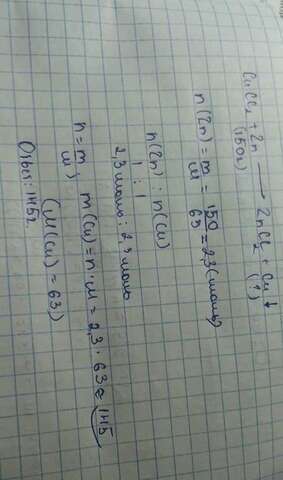 CuCl₂ + Zn → ZnCl₂ + Cu↓
(150г) (?)
n(Zn) = m/M = 150/65 = 2,3 (моль)
n(Zn) : n(Cu)
1 : 1
2,3 моль : 2,3 моль
n = m/M; m(Cu) = n·M = 2,3 · 63 ≈ 145
(M(Cu) = 63)
Ответ: 145г.